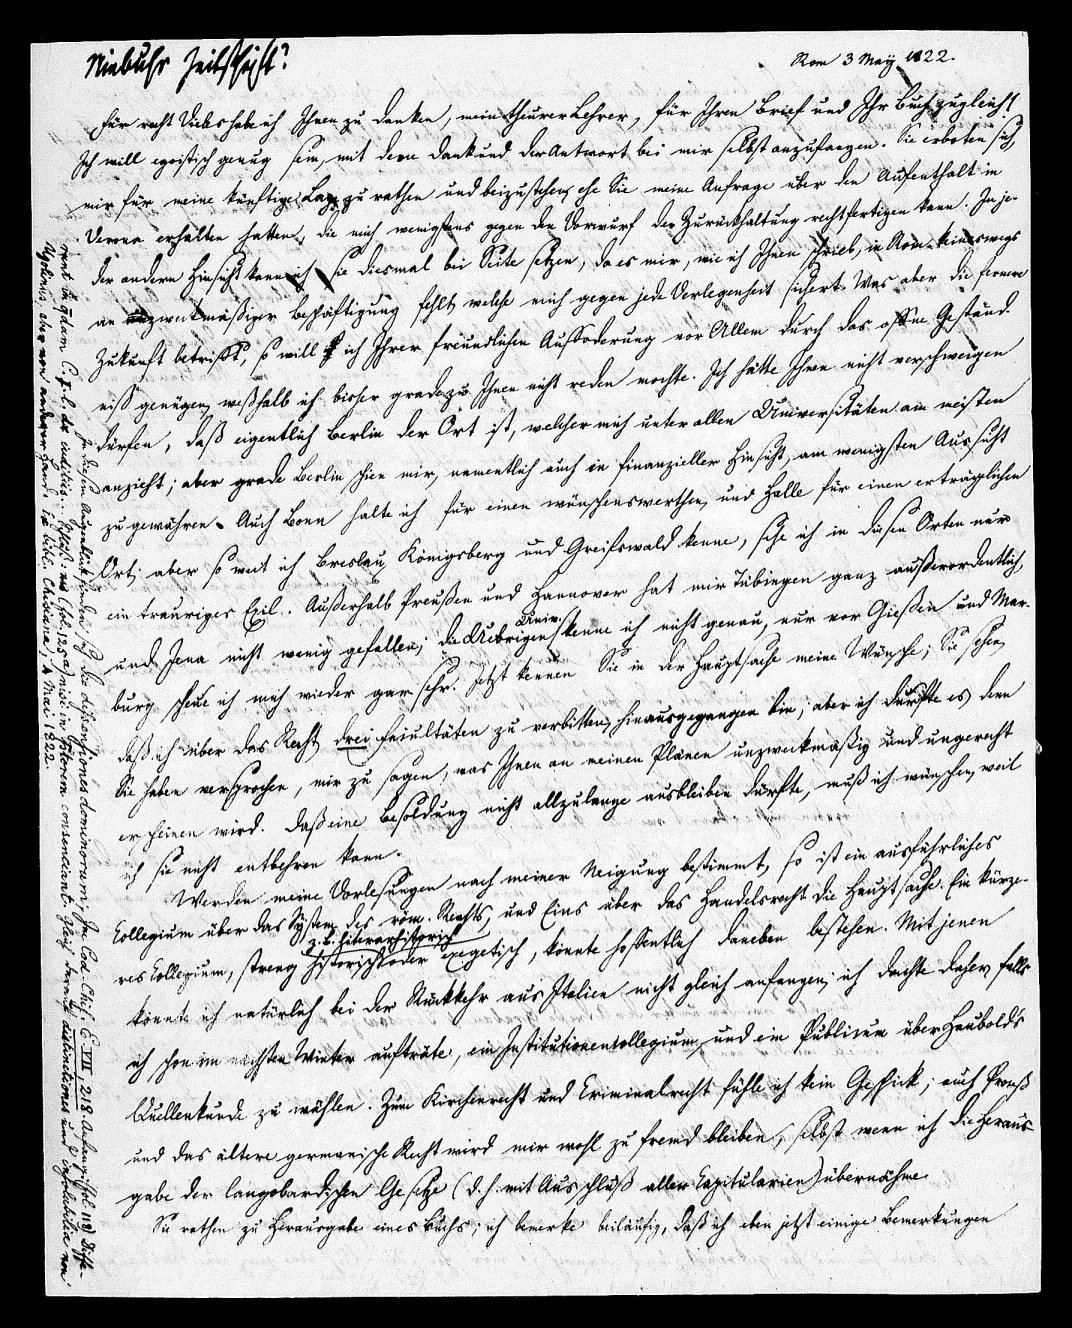 Niebuhr Zeitschrift?
Rom 3 May 1822.
Für recht Vieles habe ich Ihnen zu danken, mein theurer Lehrer, für Ihren Brief und Ihr Buch zugleich!
Ich will egoistisch genug sein, mit dem Dank und der Antwort bei mir selbst anzufangen. Sie erboten sich,
mir für meine künftige Lage zu rathen und beizustehen, ehe Sie meine Anfrage über den Aufenthalt in
Verona erhalten hatten, die mich wenigstens gegen den Vorwurf der Zurückhaltung rechtfertigen kann. In je-
der andern Hinsicht kann ich sie diesmal bei Seite setzen, da es mir, wie ich Ihnen schrieb, in Rom keineswegs
an zweckmäßiger Beschäftigung fehlt, welche mich gegen jede Verlegenheit sichert. Was aber die fernere
Zukunft betrifft, so will ich Ihrer freundlichen Auffoderung vor Allem durch das offne Geständ-
niß genügen, weßhalb ich bisher gradezu Ihnen nicht reden mochte. Ich hätte Ihnen nicht verschweigen
dürfen, daß eigentlich Berlin der Ort ist, welcher mich unter allen Universitäten am meisten
anzieht; aber grade Berlin schien mir, namentlich auch in finanzieller Hinsicht, am wenigsten Aussicht
zu gewähren. Auch Bonn halte ich für einen wünschenswerthen, und Halle für einen erträglichen
Ort; aber so weit ich Breslau, Königsberg und Greifswald kenne, sehe ich in diesen Orten nur
ein trauriges Exil. Außerhalb Preußen und Hannover hat mir Tübingen ganz außerordentlich,
und Jena nicht wenig gefallen; die Uebrigen Univ. kenne ich nicht genau, nur vor Gießen und Mar-
burg scheue ich mich wieder gar sehr. Jetzt kennen Sie in der Hauptsache meine Wünsche; Sie sehen,
daß ich über das Recht, drei Facultäten zu verbitten, hinausgegangen bin; aber ich durfte es, denn
Sie haben versprochen, mir zu sagen, was Ihnen an meinen Plänen unzweckmäßig und ungerecht
erscheinen wird. Daß eine Besoldung nicht allzulange ausbleiben dürfte, muß ich wünschen, weil
ich sie nicht entbehren kann.
Werden meine Vorlesungen nach meiner Neigung bestimmt, so ist ein ausführliches
Collegium über das System des röm. Rechts, und Eins über das Handelsrecht die Hauptsache. Ein kürze-
res Collegium, streng historisch z.B. literarhistorisch oder exegetisch, könnte hoffentlich daneben bestehen. Mit jenen
könnte ich natürlich bei der Rückkehr aus Italien nicht gleich anfangen; ich dachte daher, falls
ich schon im nächsten Winter aufträte, ein Institutionencollegium, und ein Publicum über Haubolds
Quellenkunde zu wählen. Zum Kirchenrecht und Criminalrecht fühle ich kein Geschick; auch Preuß
und das ältere germanische Recht wird mir wohl zu fremd bleiben, selbst wenn ich die Heraus-
gabe der langobardischen Gesetze (d.h. mit Ausschluß aller Capitularien) übernähme.
Sie rathen zu Herausgabe eines Buchs; ich bemerke beiläufig, daß ich eben jetzt einige Bemerkungen
In diesem Augenblick finden sich die dissensiones dominorum, im Cod. Chis. E. VII 218. Anfang (fol. 118) Diffe-
runt in qdam C. et l. de iudiciis. Schluß: (fol. 123a) nisi in fideiussorem consenciant. Gleich darauf distinctiones und casus
Hgolinus, aber von anderer Hand. In bibl. Chisiana, 4 Mai 1822.